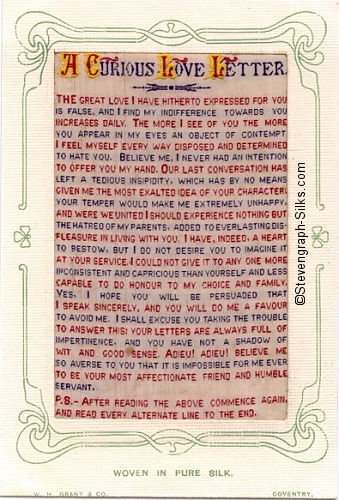 A CURIOUS LOVE LETTER.
THE GREAT LOVE I HAVE HITHERTO EXPRESSED FOR YOU
IS FALSE, AND I FIND MY INDIFFERENCE TOWARDS YOU
INCREASES DAILY. THE MORE I SEE OF YOU THE MORE
YOU APPEAR IN MY EYES AN OBJECT OF CONTEMPT
I FEEL MYSELF EVERY WAY DISPOSED AND DETERMINED
TO HATE YOU. BELIEVE ME, I NEVER HAD AN INTENTION
TO OFFER YOU MY HAND. OUR LAST CONVERSATION HAS
LEFT A TEDIOUS INSIPIDITY, WHICH HAS BY NO MEANS
GIVEN ME THE MOST EXALTED IDEA OF YOUR CHARACTER;
YOUR TEMPER WOULD MAKE ME EXTREMELY UNHAPPY,
AND WERE WE UNITED I SHOULD EXPERIENCE NOTHING BUT
THE HATRED OF MY PARENTS, ADDED TO EVERLASTING DIS-
PLEASURE IN LIVING WITH YOU. I HAVE, INDEED, A HEART
TO BESTOW, BUT I DO NOT DESIRE YOU TO IMAGINE IT
AT YOUR SERVICE. I COULD NOT GIVE IT TO ANY ONE MORE
INCONSISTENT AND CAPRICIOUS THAN YOURSELF AND LESS
CAPABLE TO DO HONOUR TO MY CHOICE AND FAMILY.
YES, I HOPE YOU WILL BE PERSUADED THAT
I SPEAK SINCERELY, AND YOU WILL DO ME A FAVOUR
TO AVOID ME. I SHALL EXCUSE YOU TAKING THE TROUBLE
TO ANSWER THIS; YOUR LETTERS ARE ALWAYS FULL OF
IMPERTINENCE, AND YOU HAVE NOT A SHADOW OF
WIT AND GOOD SENSE. ADIEU! ADIEU! BELIEVE ME
SO AVERSE TO YOU THAT IT IS IMPOSSIBLE FOR ME EVER
TO BE YOUR MOST AFFECTIONATE FRIEND AND HUMBLE
SERVANT.
P.S.- AFTER READING THE ABOVE COMMENCE AGAIN,
AND READ EVERY ALTERNATE LINE TO THE END.
WOVEN IN PURE SILK.
W. H. GRANT & CO. COVENTRY.
©Stevengraph-Silks.com